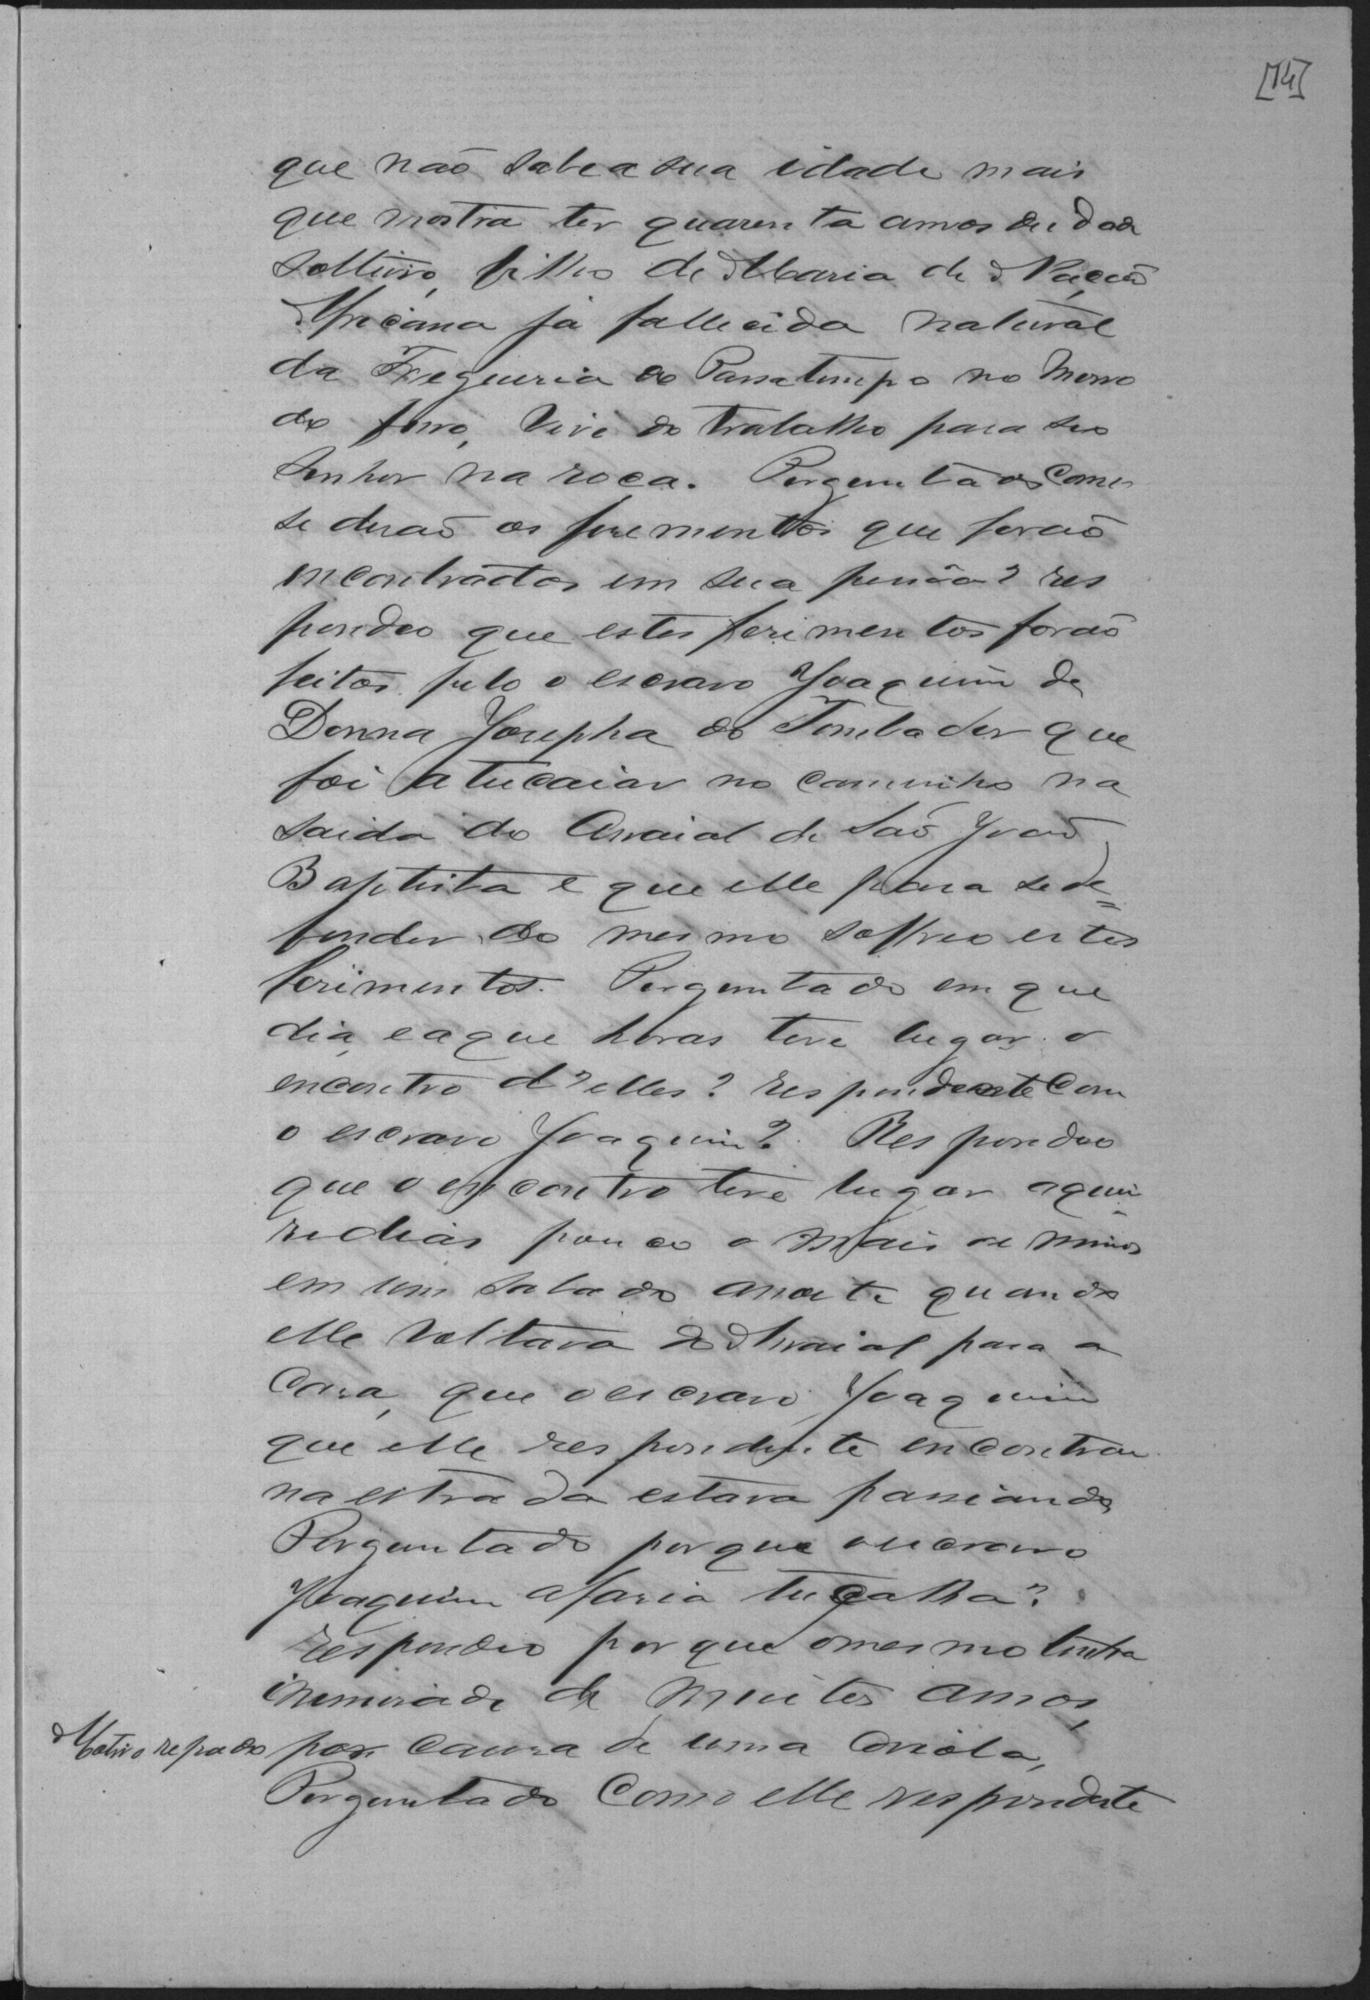 [14]
que naõ sabe a sua idade mais
que mostra ter quarenta annos de idade
Solteiro, filho de Maria de Naçaõ
Africana já fallecida natural
da Freguezia do Passatempo no Morro
do ferro, Vive do trabalho para seo
Senhor na roça. Perguntado Como
se deraõ os ferimentos que foraõ
encontrados em sua pessôa? res
pondeo que estes ferimentos foraõ
feitos pelo o escravo Joaquim de
Donna Josepha do Tombador que
foi atucaiar no caminho na
saida do Arraial de Saõ Joaõ
Baptista e que elle para se de=
fender do mesmo soffreo estes
ferimentos. Perguntado em que
dia, e a que horas teve lugar o
encontro d'elles? respondente Com
o escravo Joaquim? Respondeo
que o encontro teve lugar a quin
ze dias pouco o mais ou menos
em um sabado anoite quando
elle Voltava do Arraial para a
Casa, que o escravo Joaquim
que elle respondente encontrou
na estrada estava passiando,
Perguntado porque o escravo
Joaquim a faria tucalha?
respondeo por que o mesmo tinha
inemizade de muitos annos,
Motivo repudo por causa de uma Criola,
Perguntado Como elle respondente